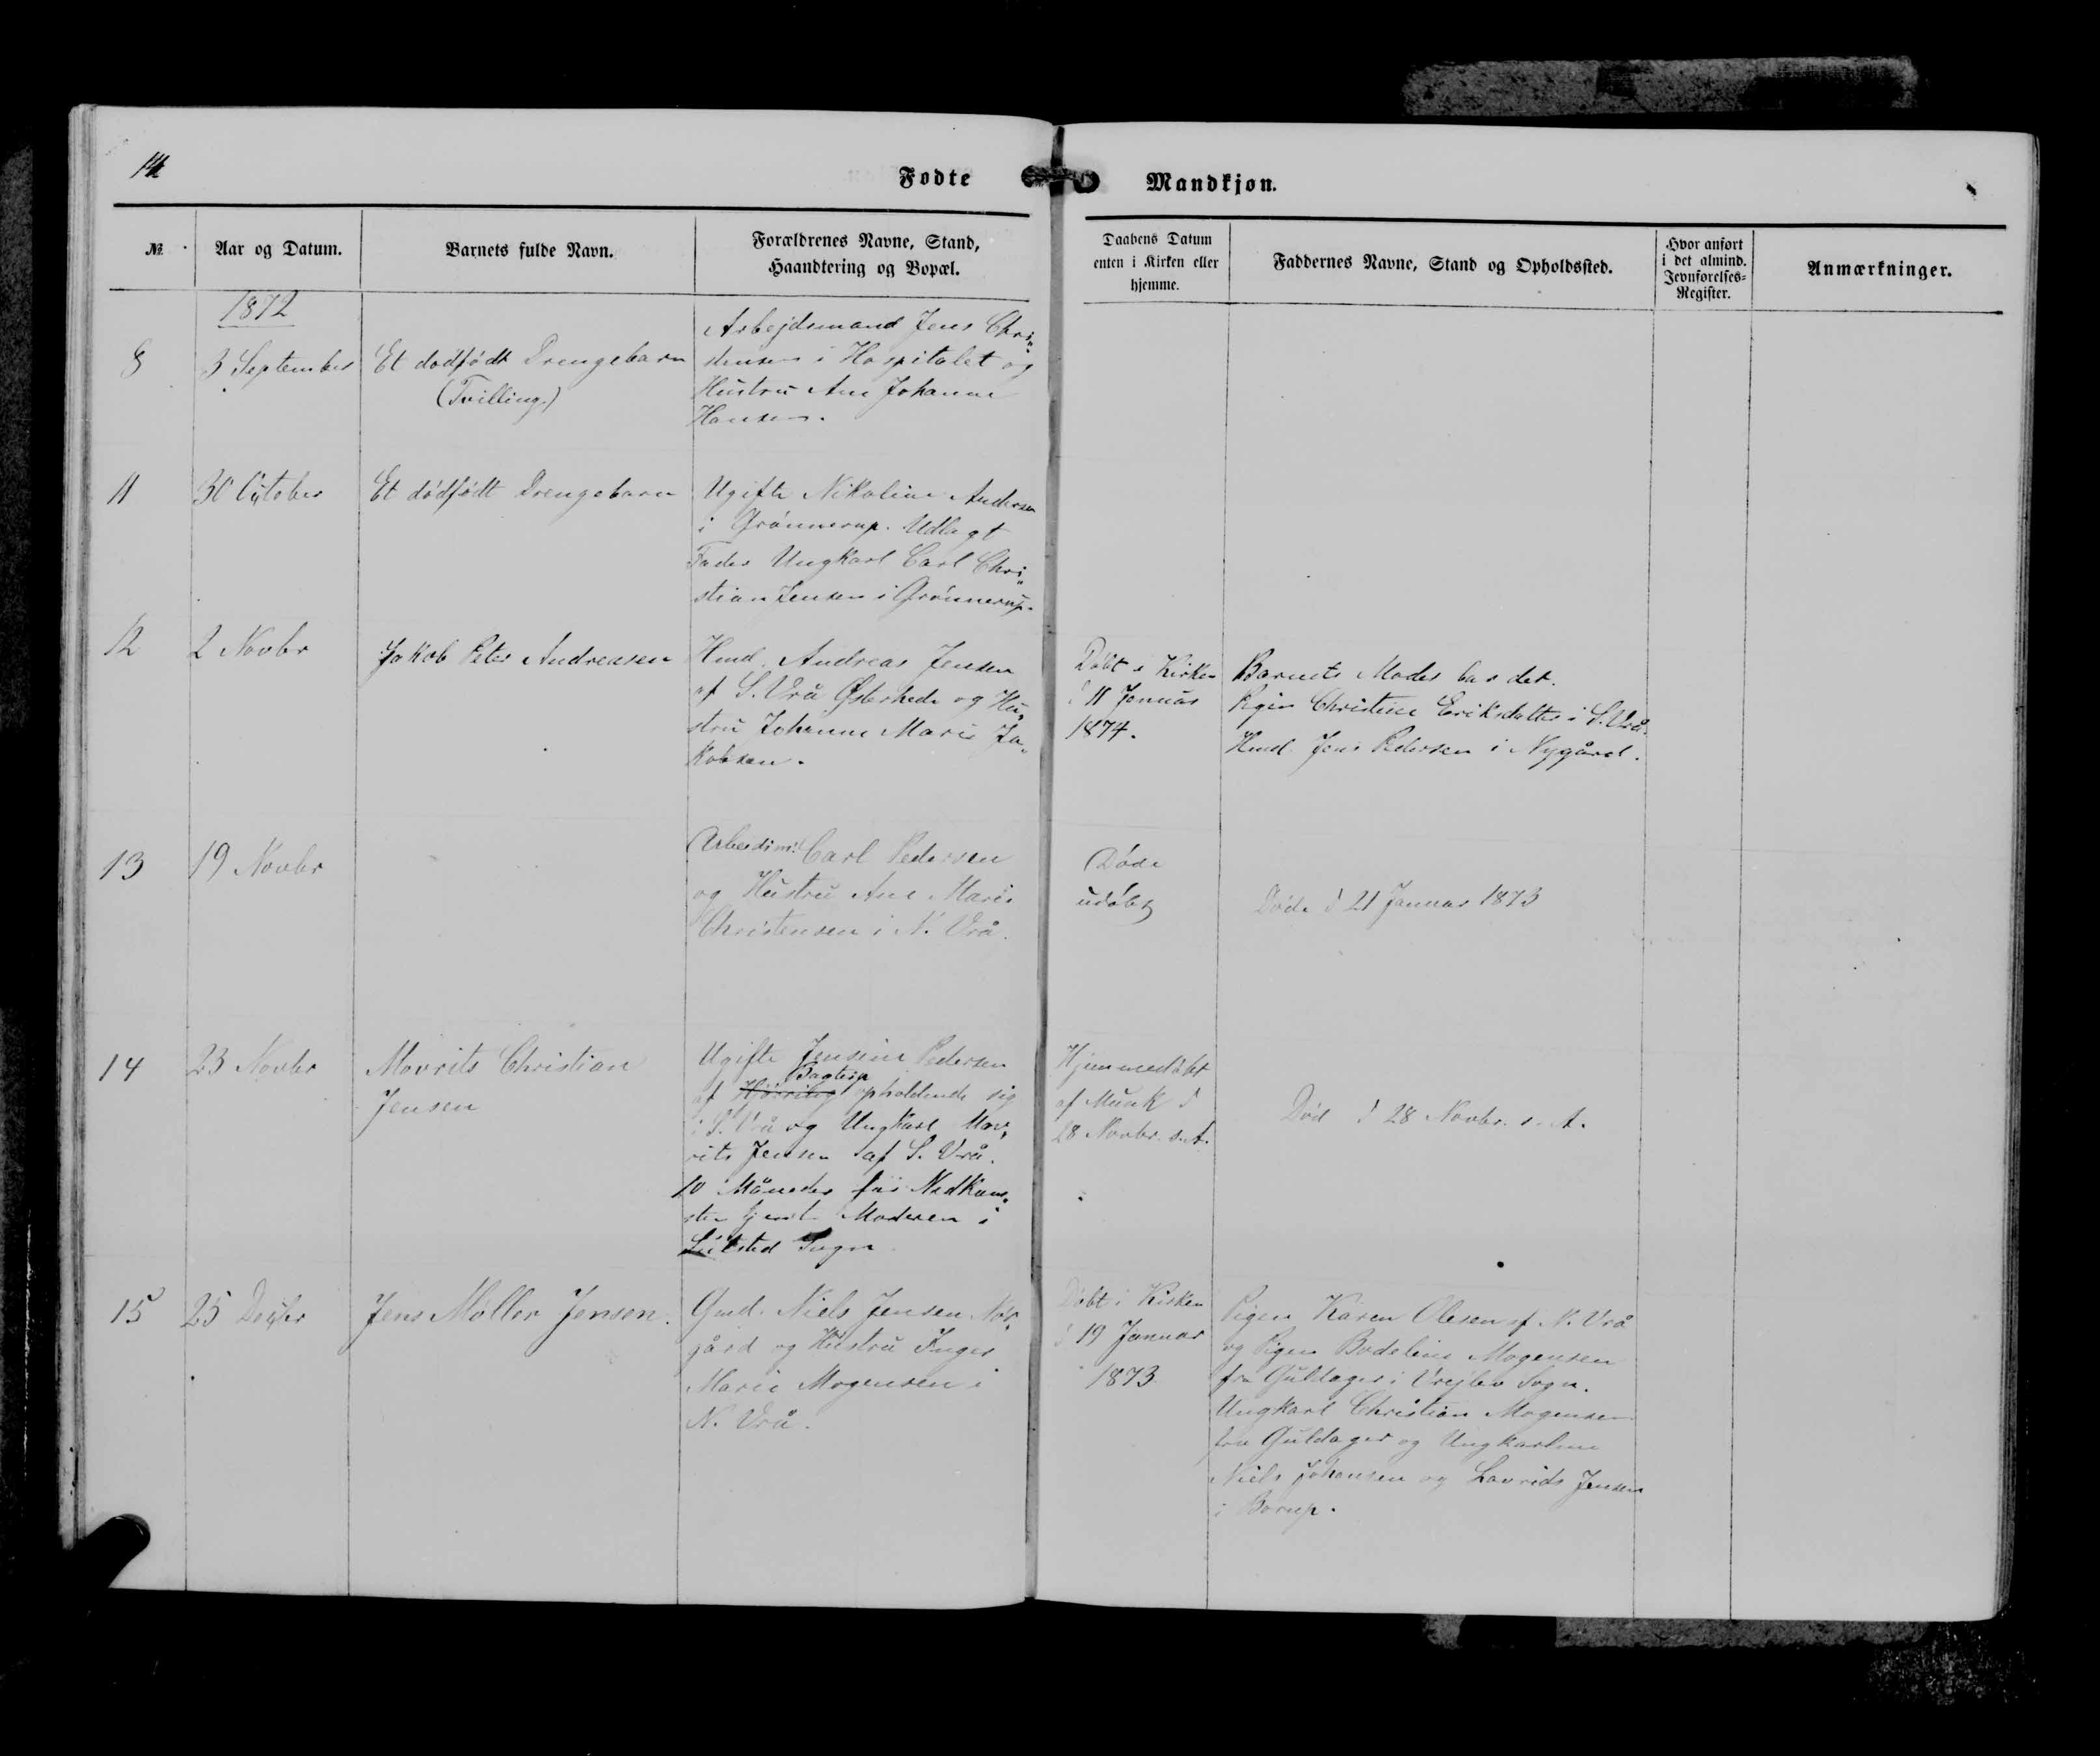 Fødte
Mandkjøn.
№
Aar og Datum.
Barnets fulde Navn.
Forældrenes Navne, Stand,
Haandtering og Bopæl.
Daabens Datum
enten i Kirken eller
hjemme.
Faddernes Navne, Stand og Opholdssted.
Hvor anført
i det almind.
Jevnførelses-
Register.
Anmærkninger.
1872
8
3 September
Et dødfødt Drengebarn
(Tvilling.)
Arbejdsmand Jens Chri„
stensen i Hospitalet og
Hustru Ane Johanne
Hansen.
11
30 October
Et dødfødt Drengebarn
Ugifte Nikoline Andersen
i Grønnerup. Udlagt
Fader Ungkarl Carl Chri„
stian Jensen i Grønnerup.
12
2 Novbr
Jakob Peter Andreasen
Hmd. Andreas Jensen
af S. Vrå Østerhede og Hu„
stru Johanne Marie Ja„
kobsen.
Døbt i Kirken
d 11 Januar
1874.
Barnets Moder bar det.
Pigen Christine Eriksdatter i S. Vrå.
Hmd. Jens Pedersen i Nygård.
13
19 Novbr
Arbeidsm. Carl Pedersen
og Hustru Ane Marie
Christensen i N. Vrå.
Døde
udøbt
Døde d 21 Januar 1873
14
23 Novbr
Mavrits Christian
Jensen
Ugifte Jensine Pedersen
Bagterp
af opholdende sig
i S. Vrå og Ungkarl Mav„
rits Jensen af S. Vrå.
10 Måneder før Nedkom„
sten tjente Moderen i
Sogn
Hjemmedøbt
af Munk d
28 Novbr. s. A.
Død d 28 Novbr. s. A.
15
25 Decbr
Jens Møller Jensen.
Gmd. Niels Jensen Nør„
gård og Hustru Inger
Marie Mogensen i
N. Vrå.
Døbt i Kirken
d 19 Januar
1873
Pigen Karen Olesen af N. Vrå
og Pigen Bodeline Mogensen
fra Guldager i Vrejlev Sogn.
Ungkarl Christian Mogensen
fra Guldager og Ungkarlene
Niels Johansen og Lavrids Jensen
i Borup.